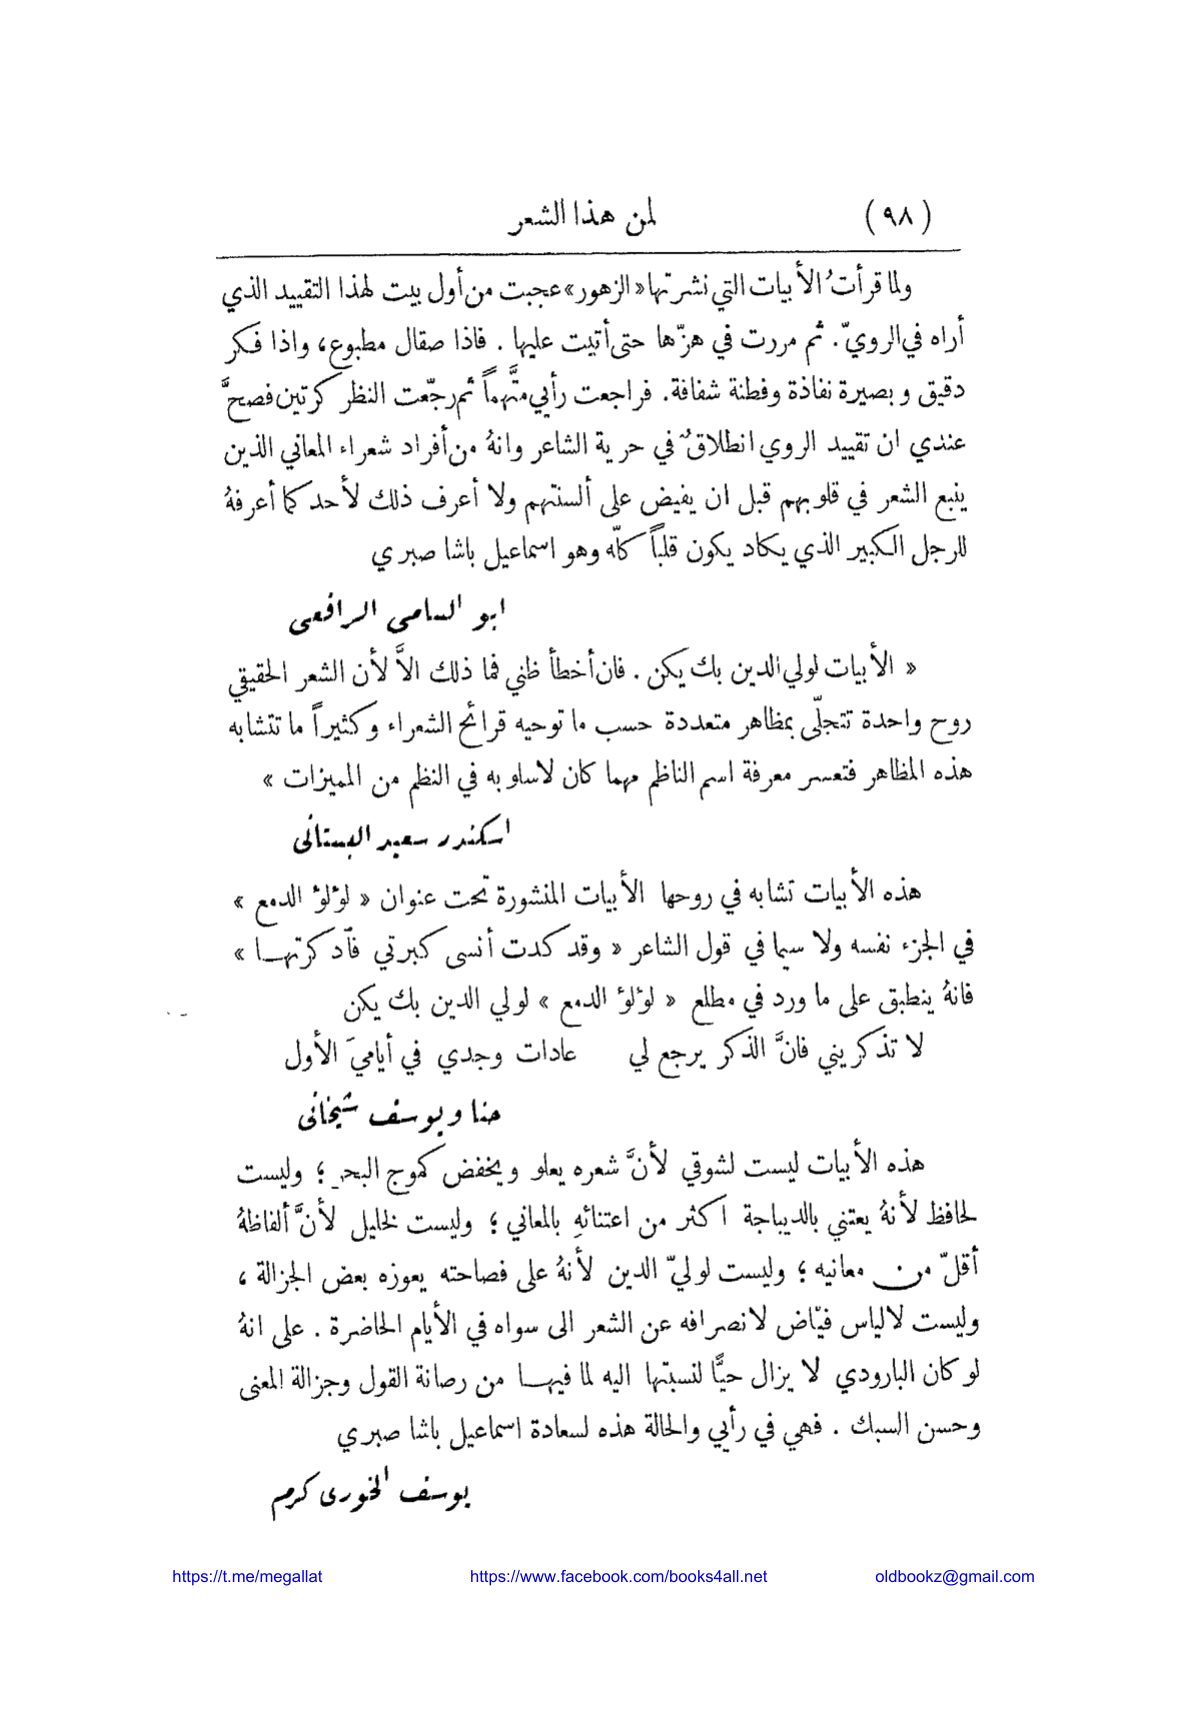 (٩٨) لمن هذا الشعر
ولما قرأتُ الأبيات التي نشرتها «الزهور» عجبت من أول بيت لهذا التقييد الذي
أراه في الرويّ. ثم مررت في هزّها حتى أتيت عليها . فاذا صقال مطبوع، واذا فكر
دقيق وبصيرة نفاذة وفطنة شفافة. فراجعت رأيي متَّهماً ثم رجّعت النظر كرتين فصحَّ
عندي ان تقييد الروي انطلاقٌ في حرية الشاعر وانهُ من أفراد شعراء المعاني الذين
ينبع الشعر في قلوبهم قبل ان يفيض على ألسنتهم ولا أعرف ذلك لأحد كما أعرفهُ
للرجل الكبير الذي يكاد يكون قلباً كلّه وهو اسماعيل باشا صبري
ابو السامي الرافعي
« الأبيات لولي الدين بك يكن . فان أخطأ ظني فما ذلك الاَّ لأن الشعر الحقيقي
روح واحدة تتجلّى بمظاهر متعددة حسب ما توحيه قرائح الشعراء وكثيراً ما تتشابه
هذه المظاهر فتعسر معرفة اسم الناظم مهما كان لاسلوبه في النظم من المميزات »
اسكندر سعيد البستاني
هذه الأبيات تشابه في روحها الأبيات المنشورة تحت عنوان « لؤلؤ الدمع »
في الجزء نفسه ولا سيما في قول الشاعر « وقد كدت أنسى كبرتي فآدكرتها »
فانهُ ينطبق على ما ورد في مطلع « لؤلؤ الدمع » لولي الدين بك يكن
لا تذكريني فانَّ الذكر يرجع لي عادات وجدي في أياميَ الأول
حنا ويوسف شيخاني
هذه الأبيات ليست لشوقي لأنَّ شعره يعلو ويخفض كموج البحر ؛ وليست
لحافظ لأنهُ يعتني بالديباجة اكثر من اعتنائهِ بالمعاني ؛ وليست لخليل لأنَّ ألفاظهُ
أقلّ من معانيه ؛ وليست لوليّ الدين لأنهُ على فصاحته يعوزه بعض الجزالة ،
وليست لالياس فيّاض لانصرافه عن الشعر الى سواه في الأيام الحاضرة . على انهُ
لو كان البارودي لا يزال حيًّا لنسبتها اليه لما فيها من رصانة القول وجزالة المعنى
وحسن السبك . فهي في رأيي والحالة هذه لسعادة اسماعيل باشا صبري
يوسف الخوري كرم
https://t.me/megallat https://www.facebook.com/books4all.net oldbookz@gmail.com